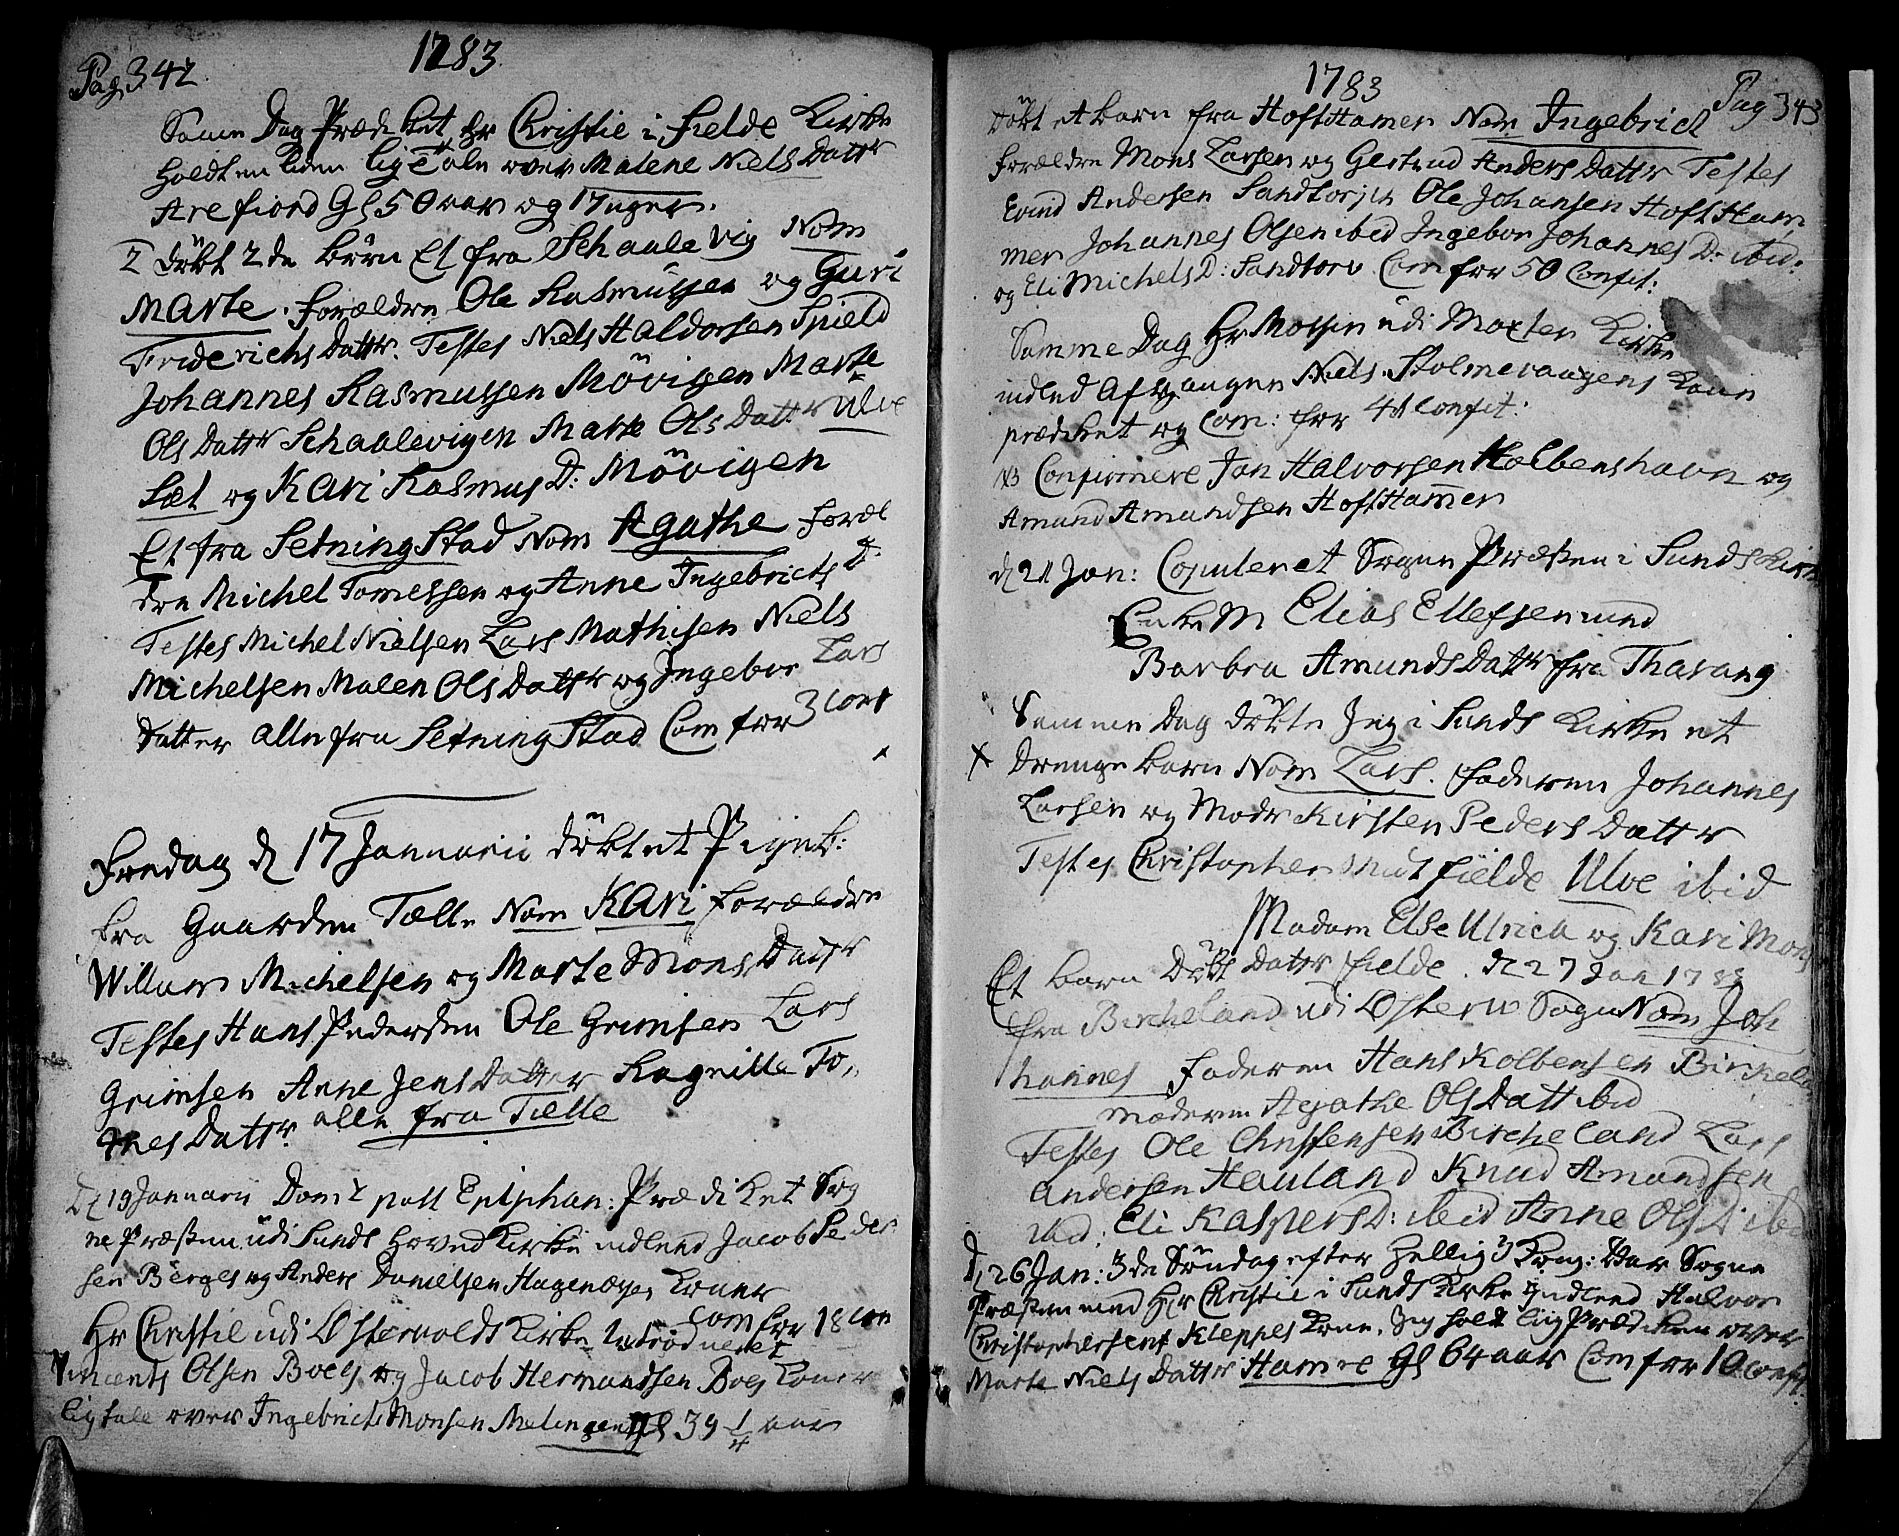 Pag. 342
1783
Samme Dag Prædiket Hr Christie i Fielde Kirke
holdt en liden ligtale over Malene Niels Dattr
Arefiord Gl 50 aar og 17 uger.
2 Döbt 2de börn Et fra Schaale Vig Nom
Marte. Forældre Ole Rasmussen og Guri
Friderichs Dattr. Testes Niels Haldorsen Spield
Johannes Rasmussen Mövigen Marte
Ols Dattr Schaalevigen Marte Ols Dattr Ulve
Sæt og Kari Rasmus D: Mövigen
Et fra Setning Stad Nom Agathe Foræl
dre Michel Tomessen og Anne Ingebrichts D:
Testes Michel Nielsen Lars Mathisen Niels
Michelsen Malen Ols Dattr og Ingebor Lars
Datter alle fra Setning Stad Com for 3 conf
Fredag d 17 Januarii döbt et Pigeb:
fra Gaarden Tælle Nom Kari Forældre
Willum Michelsen og Marte Mons Dattr
Testes Hans Pedersen Ole Grimsen Lars
Grimsen Anne Jens Datter Ragnille To,,
mes Dattr. alle fra Tælle
D 19 Januarii Dom 2 post Epiphan: Prædiket Sog
ne Præsten udi Sunds Hoved Kirke indled Jacob Peder
sen Berges og Anders Danielsen Hagenæses Koner
Com for 18 Con
Hr Christie udi Östervolds Kirke Introduceret
Vincents Olsen Boeg og Jacob Hermandsen Boes Koner
ligtale over Ingebricht Monsen Melingen Gl 39 1/4 aar
1783
Pag 343
Döbt et barn fra Hofthamer Nom Ingebrict
Forældre Mons Larsen og Gertrud Anders Dattr Testes
Evind Andersen Sandtorjen Ole Johansen Hoftham,,
mer Johannes Olsen ibid Ingebor Johannes D: ibid:
og Eli Michels D: Sandtorv Com for 50 Confit:
Samme Dag Hr Mossin udi Moxter Kirke
indled Niels Stolmevaagens Kone
prædiket og Com: for 41 Confit:
NB Confirmere Jon Halvorsen Kolbenshavn og
Amund Amundsen Hofthamer
d 21 Jan: Copuleret Sogne Præsten i Sunds Kirke
Enke M Elias Ellefsen med
Barbra Amunds Dattr fra Tharang
Samme Dag döbte Jeg i Sunds Kirke et
x Drenge barn Nom Lars. Faderen Johannes
Larsen og Modr Kirsten Peders Dattr
Testes Christopher Fielde Ulve ibid
Madam Else Ulrica og Kari Mons
Dattr Fielde. d 27 Jan 1783
Et barn Döbt
fra Bircheland udi Österv Sogn Nom Joh
hannes Faderen Hans Kolbensen Birkela
Moderen Agathe Ols Datt ibid
Testes Ole Christensen Bircheland Lars
Andersen Hauland Knud Amundsen
ibid: Eli Kaspers D: ibid Anne Ols D ibid
D, 26 Jan: 3de Söndag efter Hellig 3 Kong: Var Sogne
Præsten med Hr Christie i Sunds Kirke Indled Halvor
Christophersens Kleppes Kone. Jeg holt Liig Prædiken over
Marte Niels Dattr Hamre Gl 64 aar Com for 10 Conf.